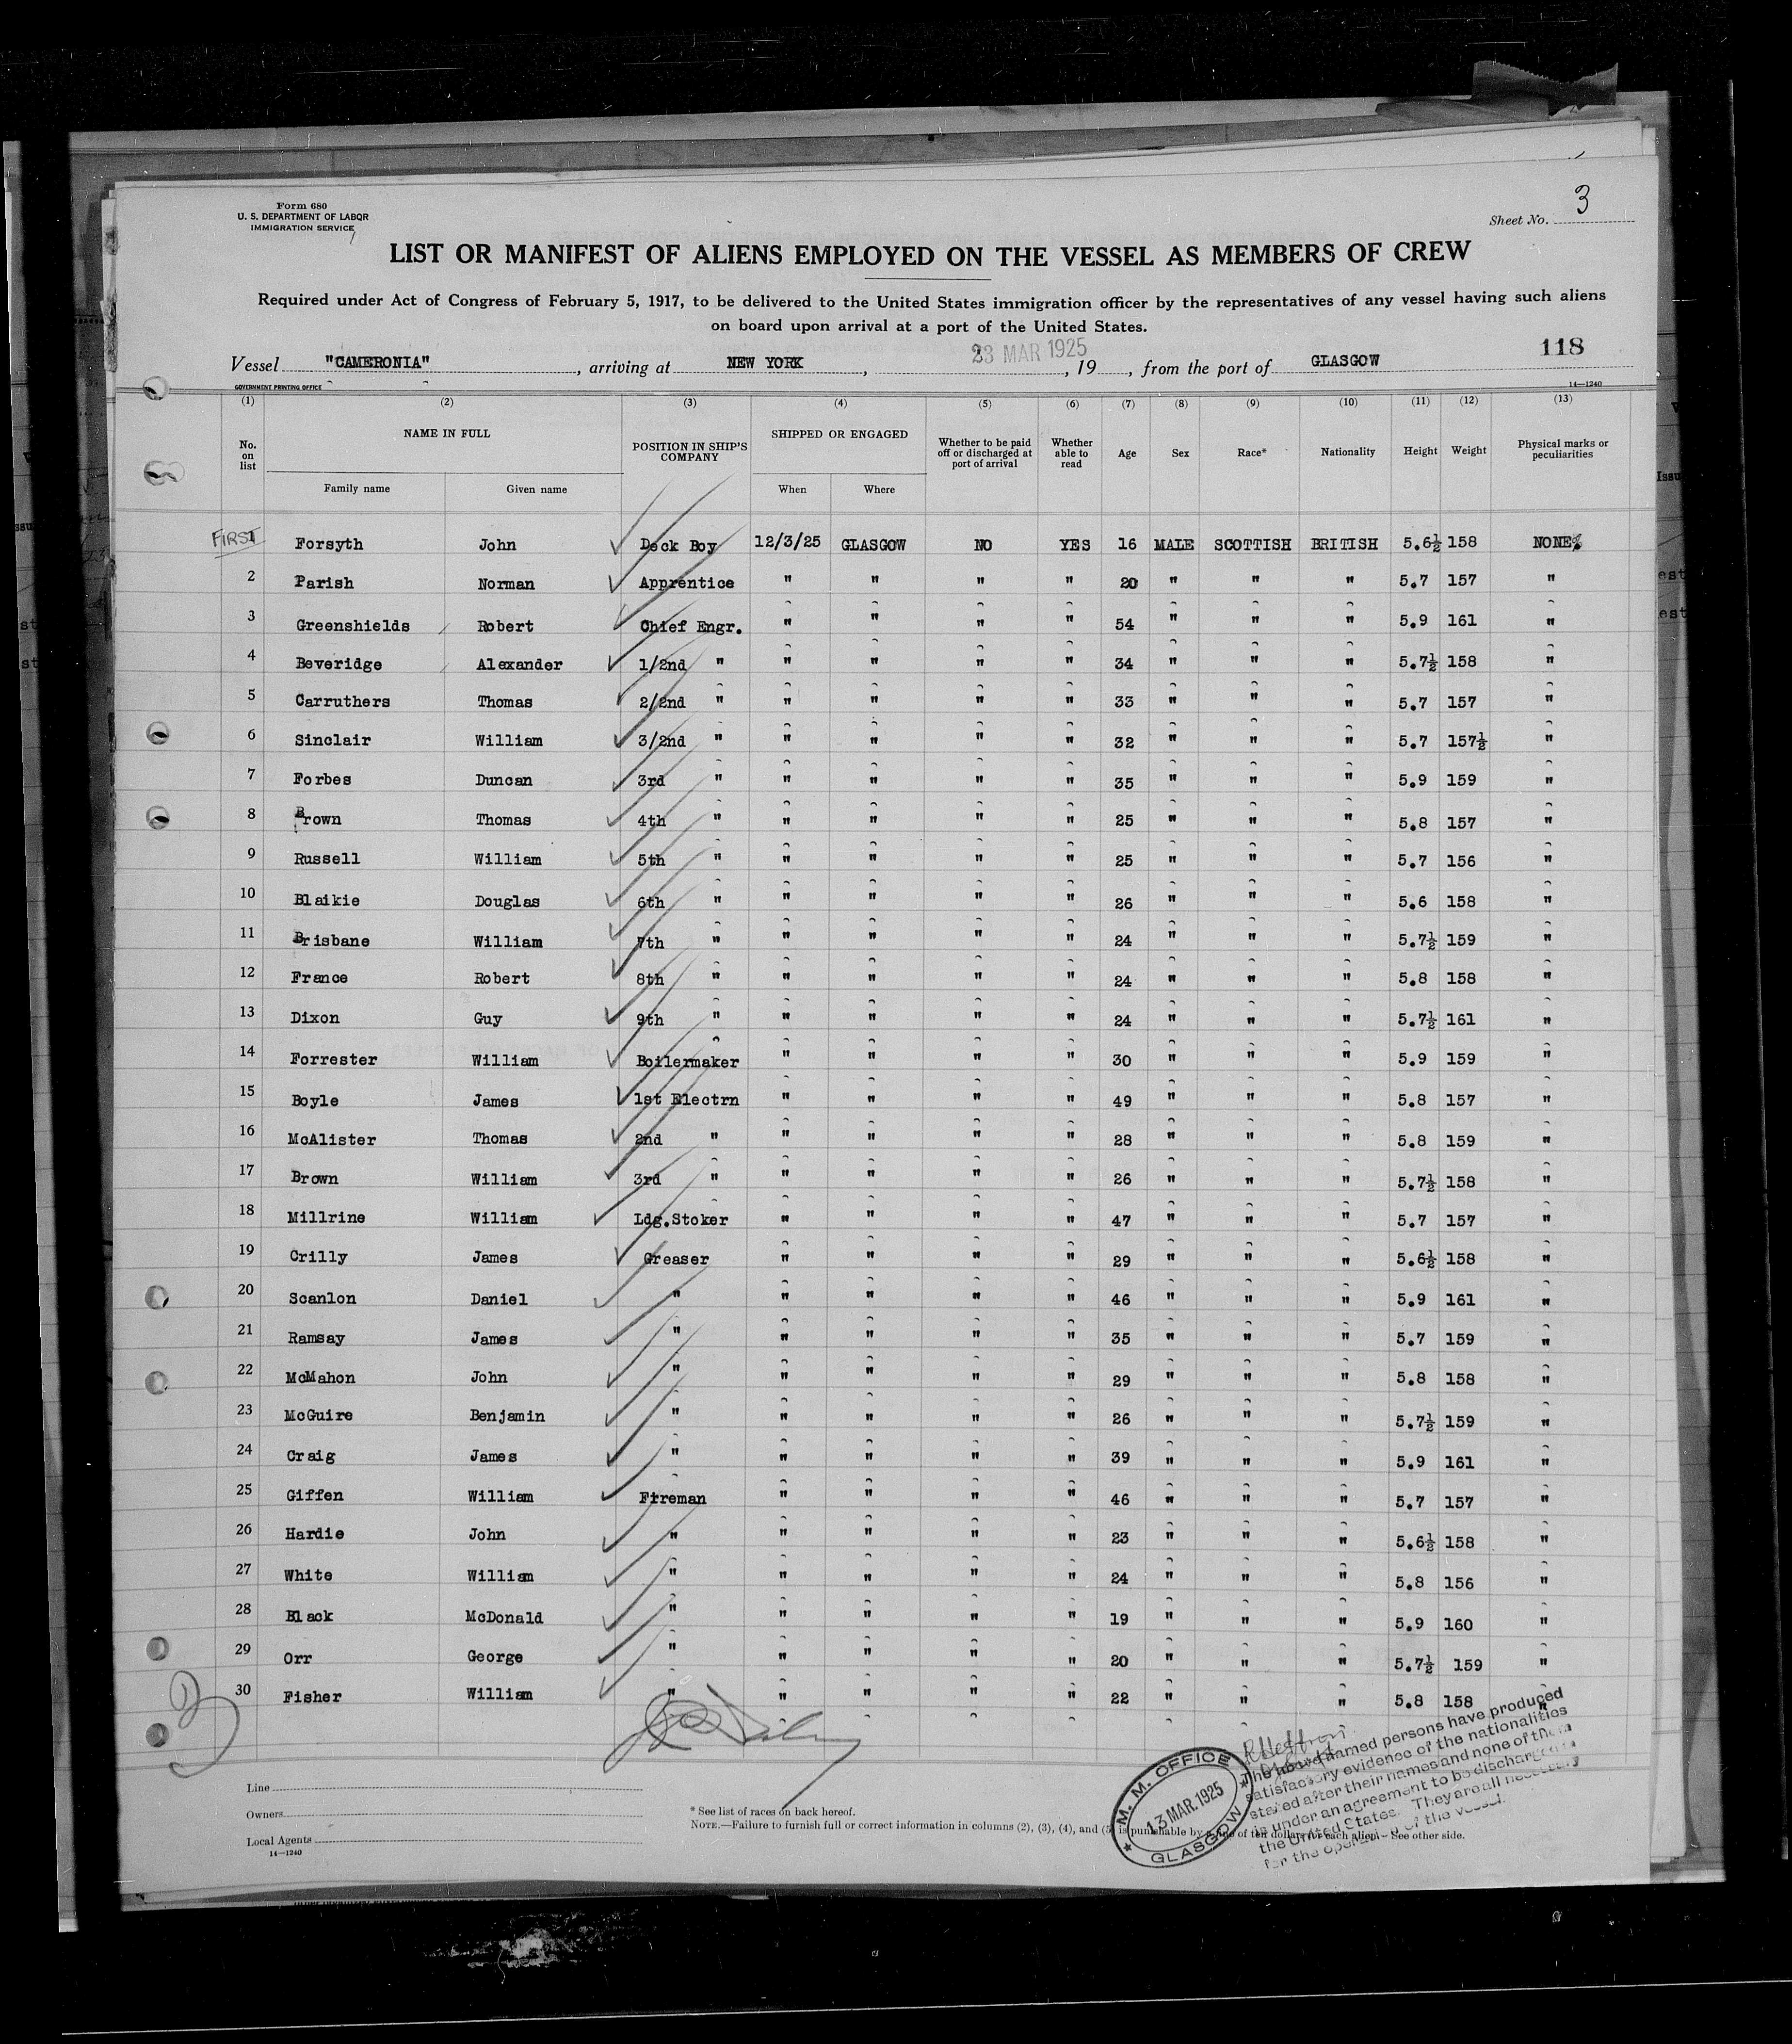 Form 680
U. S. DEPARTMENT OF LABOR
IMMIGRATION SERVICE
Sheet No. 3
LIST OR MANIFEST OF ALIENS EMPLOYED ON THE VESSEL AS MEMBERS OF CREW
Required under Act of Congress of February 5, 1917, to be delivered to the United States immigration officer by the representatives of any vessel having such aliens
on board upon arrival at a port of the United States.
118
Vessel "CAMERONIA", arriving at NEW YORK, 23 MAR 1925, 19, from the port of GLASGOW
GOVERNMENT PRINTING OFFICE 14—1240
(1) (2) (3) (4) (5) (6) (7) (8) (9) (10) (11) (12) (13)
No. on list NAME IN FULL POSITION IN SHIP'S COMPANY SHIPPED OR ENGAGED Whether to be paid off or discharged at port of arrival Whether able to read Age Sex Race* Nationality Height Weight Physical marks or peculiarities
Family name Given name When Where
FIRST
1 Forsyth John Deck Boy 12/3/25 GLASGOW NO YES 16 MALE SCOTTISH BRITISH 5.6½ 158 NONE.
2 Parish Norman Apprentice " " " " 20 " " " 5.7 157 "
3 Greenshields Robert Chief Engr. " " " " 54 " " " 5.9 161 "
4 Beveridge Alexander 1/2nd " " " " " 34 " " " 5.7½ 158 "
5 Carruthers Thomas 2/2nd " " " " " 33 " " " 5.7 157 "
6 Sinclair William 3/2nd " " " " " 32 " " " 5.7 157½ "
7 Forbes Duncan 3rd " " " " " 35 " " " 5.9 159 "
8 Brown Thomas 4th " " " " " 25 " " " 5.8 157 "
9 Russell William 5th " " " " " 25 " " " 5.7 156 "
10 Blaikie Douglas 6th " " " " " 26 " " " 5.6 158 "
11 Brisbane William 7th " " " " " 24 " " " 5.7½ 159 "
12 France Robert 8th " " " " " 24 " " " 5.8 158 "
13 Dixon Guy 9th " " " " " 24 " " " 5.7½ 161 "
14 Forrester William Boilermaker " " " " 30 " " " 5.9 159 "
15 Boyle James 1st Electrn " " " " 49 " " " 5.8 157 "
16 McAlister Thomas 2nd " " " " " 28 " " " 5.8 159 "
17 Brown William 3rd " " " " " 26 " " " 5.7½ 158 "
18 Millrine William Ldg.Stoker " " " " 47 " " " 5.7 157 "
19 Crilly James Greaser " " " " 29 " " " 5.6½ 158 "
20 Scanlon Daniel " " " " " 46 " " " 5.9 161 "
21 Ramsay James " " " " " 35 " " " 5.7 159 "
22 McMahon John " " " " " 29 " " " 5.8 158 "
23 McGuire Benjamin " " " " " 26 " " " 5.7½ 159 "
24 Craig James " " " " " 39 " " " 5.9 161 "
25 Giffen William Fireman " " " " 46 " " " 5.7 157 "
26 Hardie John " " " " " 23 " " " 5.6½ 158 "
27 White William " " " " " 24 " " " 5.8 156 "
28 Black McDonald " " " " " 19 " " " 5.9 160 "
29 Orr George " " " " " 20 " " " 5.7½ 159 "
30 Fisher William " " " " " 22 " " " 5.8 158 "
The above named persons have produced
satisfactory evidence of the nationalities
stated after their names and none of them
is under an agreement to be discharged in
the United States. They are all necessary
for the operation of the vessel.
M. M. OFFICE
13 MAR. 1925
GLASGOW
Line
Owners
Local Agents
14—1240
* See list of races on back hereof.
NOTE.—Failure to furnish full or correct information in columns (2), (3), (4), and (5) is punishable by a fine of ten dollars for each alien. See other side.